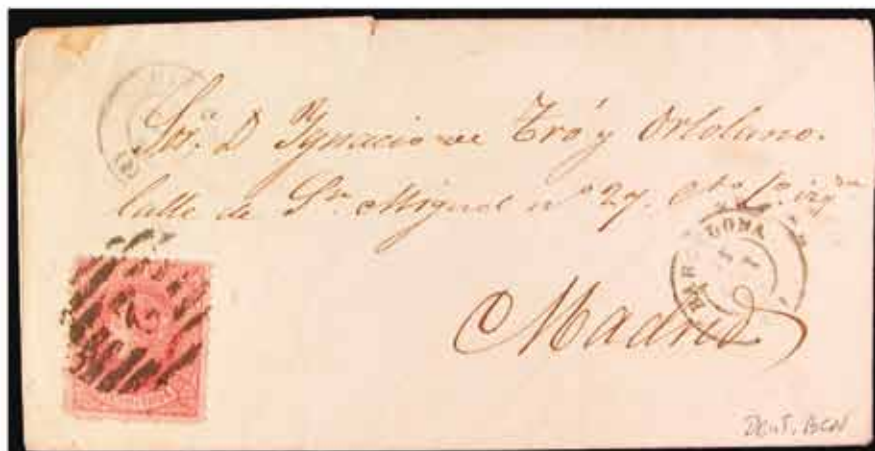 Sor. D Ygnacio de Tró y Ortolano.
Calle de Sn. Miguel nº 27. Cto. 1º izqda
BARCELONA
Madrid
2
Dent. BCN